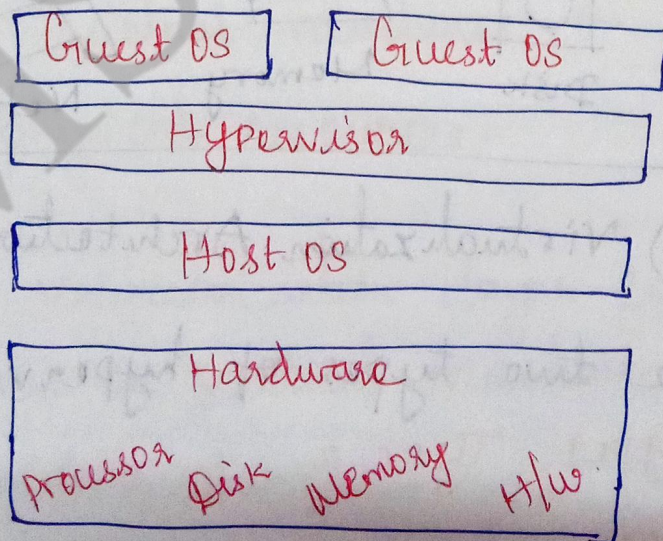 Guest OS Guest OS
Hypervisor
Host OS
Hardware
Processor Disk Memory H/w